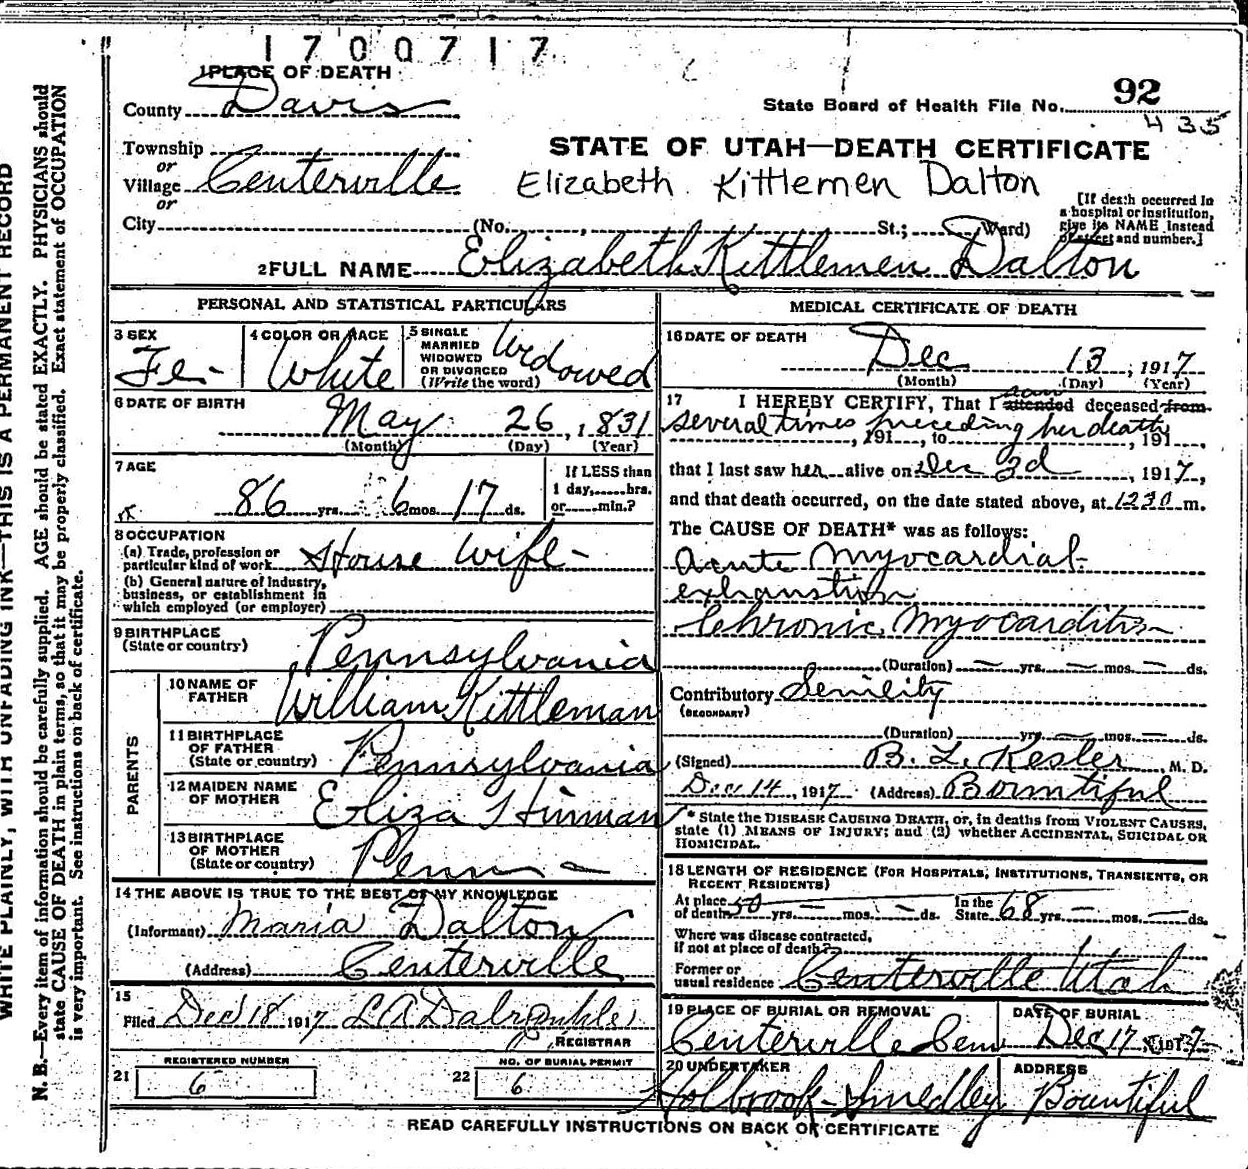 1700717
1 PLACE OF DEATH
County Davis
State Board of Health File No. 92
435
Township
or
Village Centerville
or
City
STATE OF UTAH—DEATH CERTIFICATE
Elizabeth Kittlemen Dalton
(No. , St.; Ward)
[If death occurred in
a hospital or institution,
give its NAME instead
of street and number.]
2 FULL NAME Elizabeth Kittlemen Dalton
PERSONAL AND STATISTICAL PARTICULARS
3 SEX
Fe-
4 COLOR OR RACE
White
5 SINGLE
MARRIED
WIDOWED
OR DIVORCED
(Write the word)
Widowed
6 DATE OF BIRTH
May 26, 1831
(Month) (Day) (Year)
7 AGE
86 yrs. 6 mos. 17 ds.
If LESS than
1 day, hrs.
or min.?
8 OCCUPATION
(a) Trade, profession or
particular kind of work House Wife-
(b) General nature of industry,
business, or establishment in
which employed (or employer)
9 BIRTHPLACE
(State or country) Pennsylvania
PARENTS
10 NAME OF
FATHER William Kittleman
11 BIRTHPLACE
OF FATHER
(State or country) Pennsylvania
12 MAIDEN NAME
OF MOTHER Eliza Hinman
13 BIRTHPLACE
OF MOTHER
(State or country) Penn—
14 THE ABOVE IS TRUE TO THE BEST OF MY KNOWLEDGE
(Informant) Maria Dalton
(Address) Centerville
15
Filed Dec 18 1917 L A Dalrymple
REGISTRAR
REGISTERED NUMBER
21 6
NO. OF BURIAL PERMIT
22 6
MEDICAL CERTIFICATE OF DEATH
16 DATE OF DEATH
Dec 13, 1917
(Month) (Day) (Year)
17 I HEREBY CERTIFY, That I attended saw deceased from
several times preceding her death
, 191 , to , 191 ,
that I last saw her alive on Dec 3d, 1917,
and that death occurred, on the date stated above, at 1230 m.
The CAUSE OF DEATH* was as follows:
Acute Myocardial
exhaustion
Chronic Myocarditis
(Duration) — yrs. — mos. — ds.
Contributory Senility
(SECONDARY)
(Duration) yrs. — mos. — ds.
(Signed) B. L. Kesler, M. D.
Dec 14, 1917 (Address) Bountiful
* State the DISEASE CAUSING DEATH, or, in deaths from VIOLENT CAUSES,
state (1) MEANS OF INJURY; and (2) whether ACCIDENTAL, SUICIDAL OR
HOMICIDAL.
18 LENGTH OF RESIDENCE (FOR HOSPITALS, INSTITUTIONS, TRANSIENTS, OR
RECENT RESIDENTS)
At place
of death 50 yrs. — mos. — ds.
In the
State 68 yrs. — mos. — ds.
Where was disease contracted,
if not at place of death?
Former or
usual residence Centerville Utah
19 PLACE OF BURIAL OR REMOVAL
Centerville Cem
DATE OF BURIAL
Dec 17, 1917
20 UNDERTAKER
Holbrook-Smedley
ADDRESS
Bountiful
READ CAREFULLY INSTRUCTIONS ON BACK OF CERTIFICATE
WRITE PLAINLY, WITH UNFADING INK—THIS IS A PERMANENT RECORD
N. B.—Every item of information should be carefully supplied. AGE should be stated EXACTLY. PHYSICIANS should
state CAUSE OF DEATH in plain terms, so that it may be properly classified. Exact statement of OCCUPATION
is very important. See instructions on back of certificate.